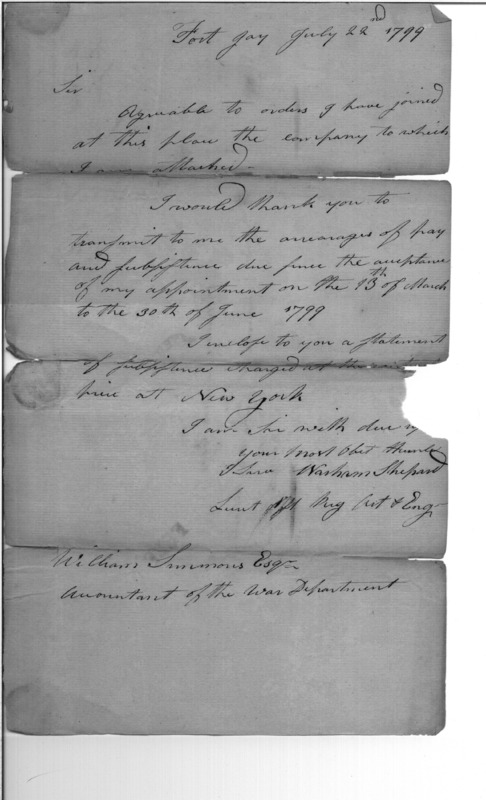 Fort Jay July 22nd 1799
Sir
Agreeable to orders I have joined
at this place the company to which
I am attached
I would thank you to
transmit to me the arrearages of pay
and subsistence due since the acceptance
of my appointment on the 13th of March
to the 30th of June 1799
I inclose to you a statement
of subsistence charged at the
price at New York
I am Sir with due
your most Obet Humble
Warham Shepard
Lieut Reg Art & Eng
William Simmons Esqr
Accountant of the War Department